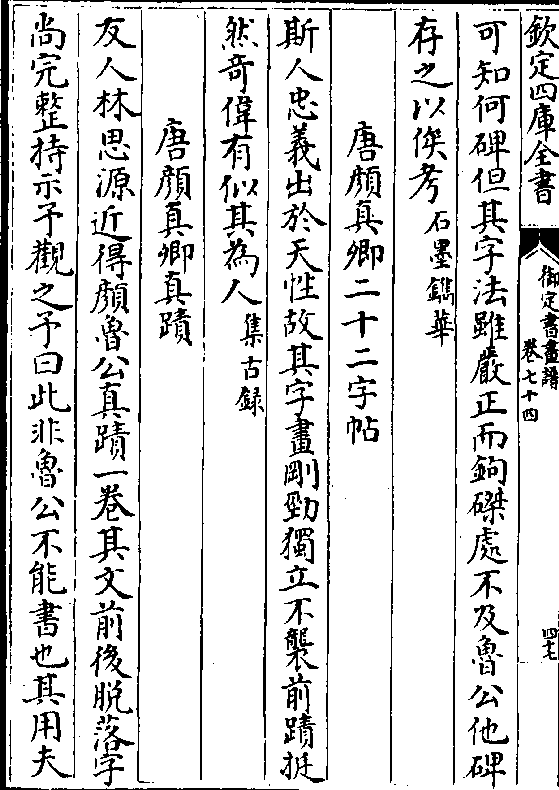 欽定四庫全書
御定書畫譜
卷七十四
四十七
可知何碑但其字法雖嚴正而鉤磔處不及魯公他碑
存之以俟考 石墨鐫華
唐顏真卿二十二字帖
斯人忠義出於天性故其字畫剛勁獨立不襲前蹟挺
然奇偉有似其為人 集古録
唐顏真卿真蹟
友人林思源近得顏魯公真蹟一卷其文前後脱落字
尚完整持示予觀之予曰此非魯公不能書也其用夫